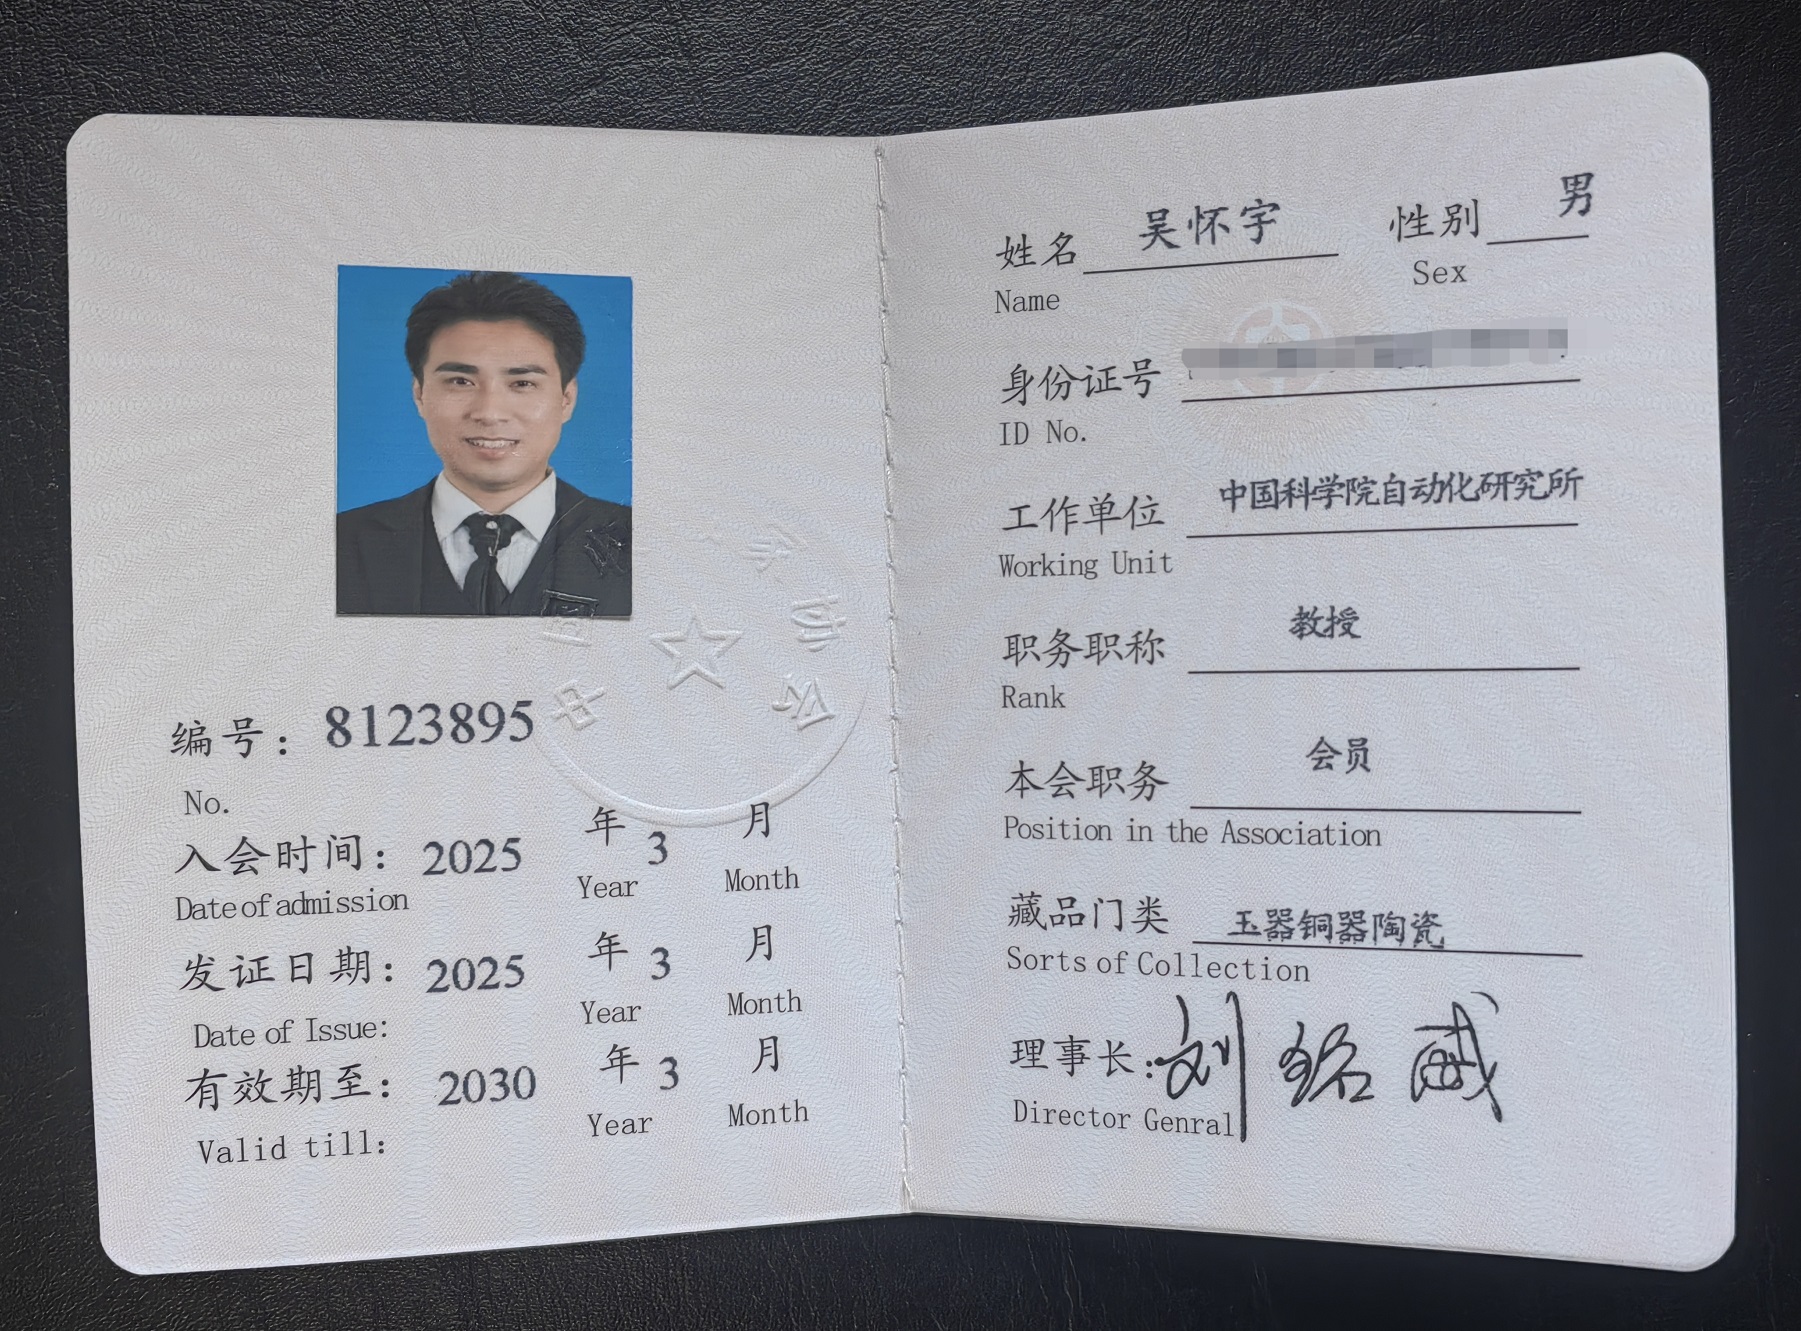 编号：8123895
No.
入会时间：2025年3月
Date of admission Year Month
发证日期：2025年3月
Date of Issue: Year Month
有效期至：2030年3月
Valid till: Year Month
姓名 吴怀宇 性别 男
Name Sex
身份证号
ID No.
工作单位 中国科学院自动化研究所
Working Unit
职务职称 教授
Rank
本会职务 会员
Position in the Association
藏品门类 玉器铜器陶瓷
Sorts of Collection
理事长：刘铭威
Director Genral